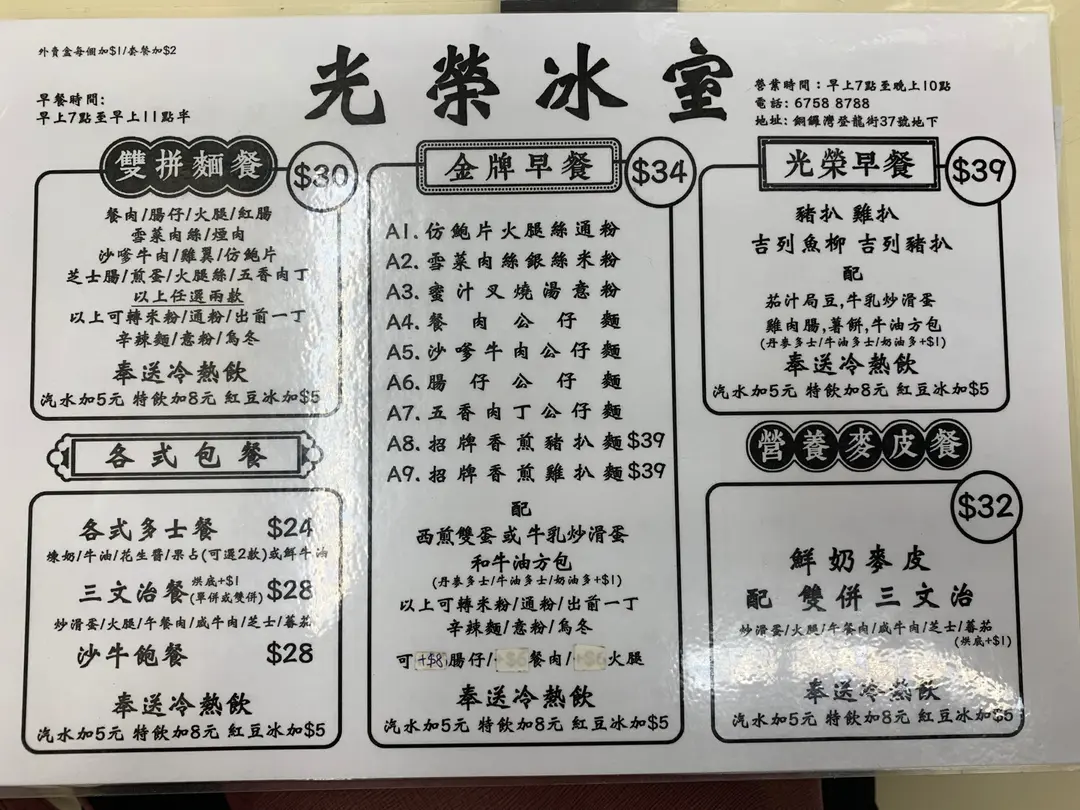 外賣盒每個加$1/套餐加$2
早餐時間:
早上7點至早上11點半
光榮冰室
營業時間：早上7點至晚上10點
電話: 6758 8788
地址: 銅鑼灣登龍街37號地下
雙拼麵餐 $30
餐肉/腸仔/火腿/紅腸
雪菜肉絲/煙肉
沙嗲牛肉/雞翼/仿鮑片
芝士腸/煎蛋/火腿絲/五香肉丁
以上任選兩款
以上可轉米粉/通粉/出前一丁
辛辣麵/意粉/烏冬
奉送冷熱飲
汽水加5元 特飲加8元 紅豆冰加$5
各式包餐
各式多士餐 $24
煉奶/牛油/花生醬/果占(可選2款)或鮮牛油
三文治餐 烘底+$1 (單併或雙併) $28
炒滑蛋/火腿/午餐肉/咸牛肉/芝士/蕃茄
沙牛飽餐 $28
奉送冷熱飲
汽水加5元 特飲加8元 紅豆冰加$5
金牌早餐 $34
A1. 仿鮑片火腿絲通粉
A2. 雪菜肉絲銀絲米粉
A3. 蜜汁叉燒湯意粉
A4. 餐肉公仔麵
A5. 沙嗲牛肉公仔麵
A6. 腸仔公仔麵
A7. 五香肉丁公仔麵
A8. 招牌香煎豬扒麵$39
A9. 招牌香煎雞扒麵$39
配
西煎雙蛋或牛乳炒滑蛋
和牛油方包
(丹麥多士/牛油多士/奶油多+$1)
以上可轉米粉/通粉/出前一丁
辛辣麵/意粉/烏冬
可+$8腸仔/+$6餐肉/+$6火腿
奉送冷熱飲
汽水加5元 特飲加8元 紅豆冰加$5
光榮早餐 $39
豬扒 雞扒
吉列魚柳 吉列豬扒
配
茄汁局豆,牛乳炒滑蛋
雞肉腸,薯餅,牛油方包
(丹麥多士/牛油多士/奶油多+$1)
奉送冷熱飲
汽水加5元 特飲加8元 紅豆冰加$5
營養麥皮餐
$32
鮮奶麥皮
配 雙併三文治
炒滑蛋/火腿/午餐肉/咸牛肉/芝士/蕃茄
(烘底+$1)
奉送冷熱飲
汽水加5元 特飲加8元 紅豆冰加$5